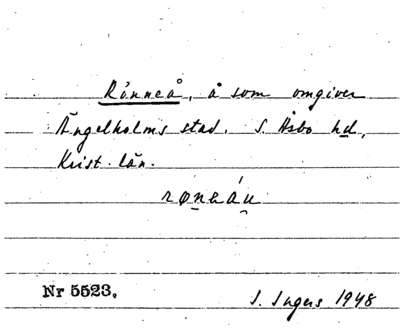 Rönneå, å som omgiver
Ängelholms stad. S. Åsbo hd,
Krist. län.
Nr 5523.
I. Ingers 1948